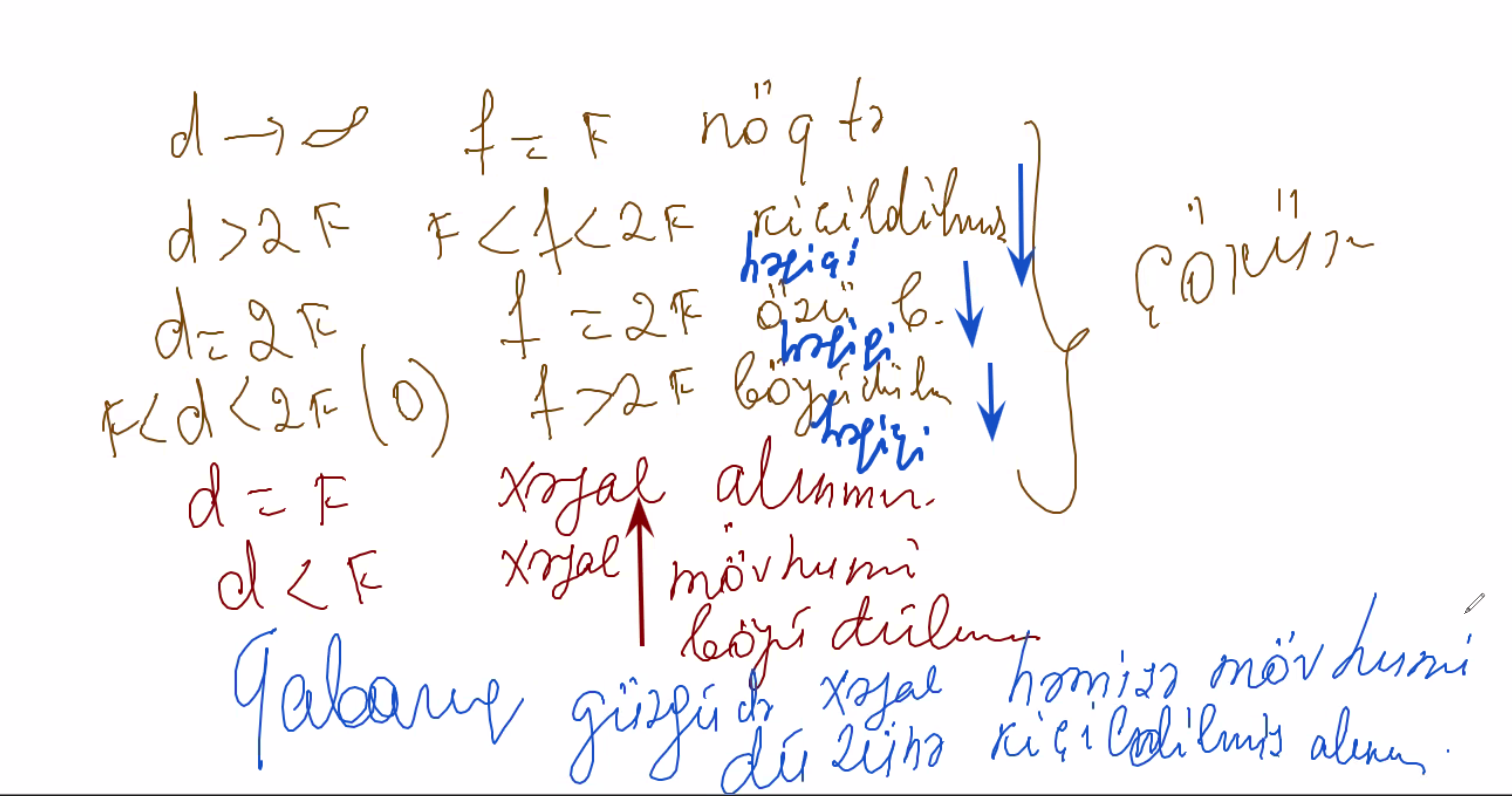 d → ∞ f = F nöqtə
d > 2F F < f < 2F kiçildilmiş
həqiqi
d = 2F f = 2F özü b.
həqiqi
F < d < 2F (O) f > 2F böyüdülm
həqiqi
Çökük
d = F xəyal alınmır.
d < F xəyal mövhumi
böyüdülmüş
Qabarıq güzgüdə xəyal həmişə mövhumi
düzünə kiçildilmiş alınır.